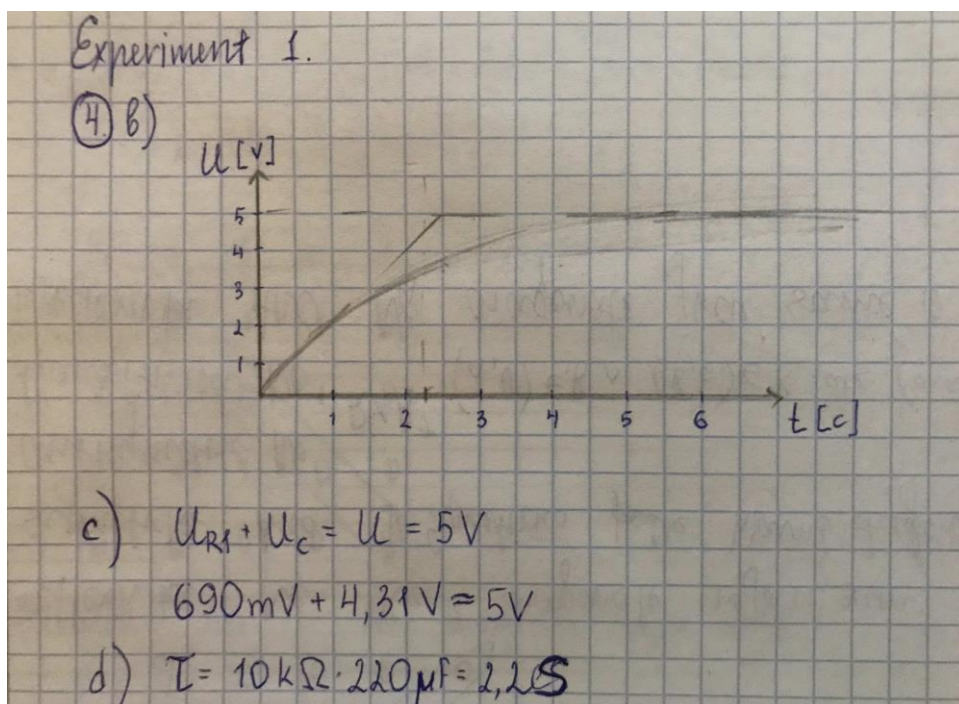 Experiment 1.
4. b)
U [V]
5
4
3
2
1
1 2 3 4 5 6 t [c]
c) U_R1 + U_c = U = 5V
690mV + 4,31V = 5V
d) τ = 10kΩ · 220μF = 2,2S